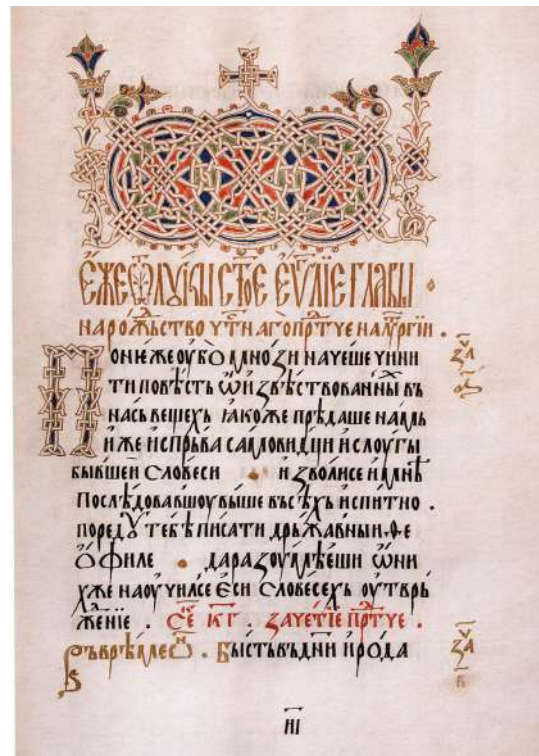 Е҆́же Ѿ лꙋкы ст҃ое еѵ҃лїе главы
на рожⷣьство чтⷭнаго прⷣтче на лѵⷮргїи .
Понѥже оубо мнози начеше чини
ти повѣсть ѡ извѣствованныⷯ въ
насъ вещехъ ꙗкоже прѣдаше намь
иже испрьва самовидци и слоугы
бывшеи словеси . изволисе и мнѣ
послѣдовавшоу выше въсѣхъ испитно .
поредꙋ тебѣ писати дрьжавныи ѳе
ѡфиле . да разоумѣеши ѡ ни
хже наоучилсе еси словесехъ оутврь
жⷣенїе . к҃г . зачетїе прⷣтче .
Въ врѣме ѡⷩ . Бысть въ дни ирода
н҃і